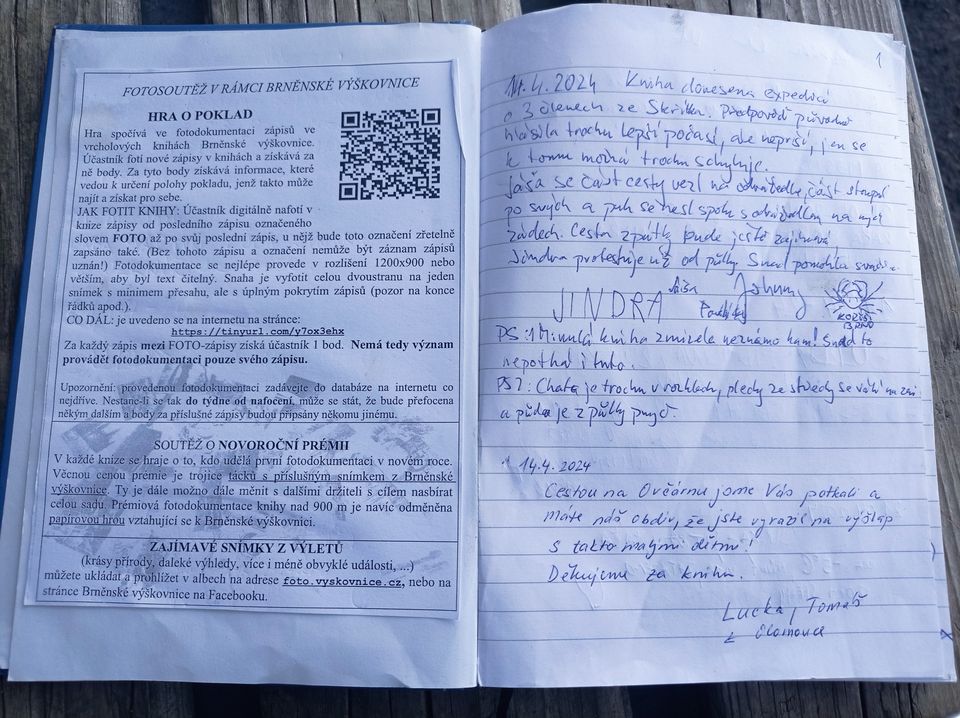 FOTOSOUTĚŽ V RÁMCI BRNĚNSKÉ VÝŠKOVNICE
HRA O POKLAD
Hra spočívá ve fotodokumentaci zápisů ve
vrcholových knihách Brněnské výškovnice.
Účastník fotí nové zápisy v knihách a získává za
ně body. Za tyto body získává informace, které
vedou k určení polohy pokladu, jenž takto může
najít a získat pro sebe.
JAK FOTIT KNIHY: Účastník digitálně nafotí v
knize zápisy od posledního zápisu označeného
slovem FOTO až po svůj poslední zápis, u nějž bude toto označení zřetelně
zapsáno také. (Bez tohoto zápisu a označení nemůže být záznam zápisů
uznán!) Fotodokumentace se nejlépe provede v rozlišení 1200x900 nebo
větším, aby byl text čitelný. Snaha je vyfotit celou dvoustranu na jeden
snímek s minimem přesahu, ale s úplným pokrytím zápisů (pozor na konce
řádků apod.).
CO DÁL: je uvedeno se na internetu na stránce:
https://tinyurl.com/y7ox3ehx
Za každý zápis mezi FOTO-zápisy získá účastník 1 bod. Nemá tedy význam
provádět fotodokumentaci pouze svého zápisu.
Upozornění: provedenou fotodokumentaci zadávejte do databáze na internetu co
nejdříve. Nestane-li se tak do týdne od nafocení, může se stát, že bude přefocena
někým dalším a body za příslušné zápisy budou připsány někomu jinému.
SOUTĚŽ O NOVOROČNÍ PRÉMII
V každé knize se hraje o to, kdo udělá první fotodokumentaci v novém roce.
Věcnou cenou prémie je trojice tácků s příslušným snímkem z Brněnské
výškovnice. Ty je dále možno dále měnit s dalšími držiteli s cílem nasbírat
celou sadu. Prémiová fotodokumentace knihy nad 900 m je navíc odměněna
papírovou hrou vztahující se k Brněnské výškovnici.
ZAJÍMAVÉ SNÍMKY Z VÝLETŮ
(krásy přírody, daleké výhledy, více i méně obvyklé události, ...)
můžete ukládat a prohlížet v albech na adrese foto.vyskovnice.cz, nebo na
stránce Brněnské výškovnice na Facebooku.
1
14.4.2024 Kniha donesena expedicí
o 3 členech ze Skřítku. Předpověď původně
hlásila trochu lepší počasí, ale neprší, jen se
k tomu možná trochu schyluje.
Jáša se část cesty vezl na odrážedle, část stoupal
po svých a pak se nesl spolu s odrážedlem na mých
zádech. Cesta zpátky bude ještě zajímavá
Jindra protestuje už od půlky. Snad pomohla
JINDRA Jáša Johnny
KOŘENI
BRNO
PS 1: Minulá kniha zmizela neznámo kam! Snad to
nepotká i tuto.
PS 2: Chata je trochu v rozkladu, plechy ze střechy se válí na zemi
a půda je z půlky pryč.
14.4.2024
Cestou na Ovčárnu jsme Vás potkali a
máte náš obdiv, že jste vyrazil na výšlap
s takto malými dětmi!
Děkujeme za knihu.
Lucka, Tomáš
z Olomouce